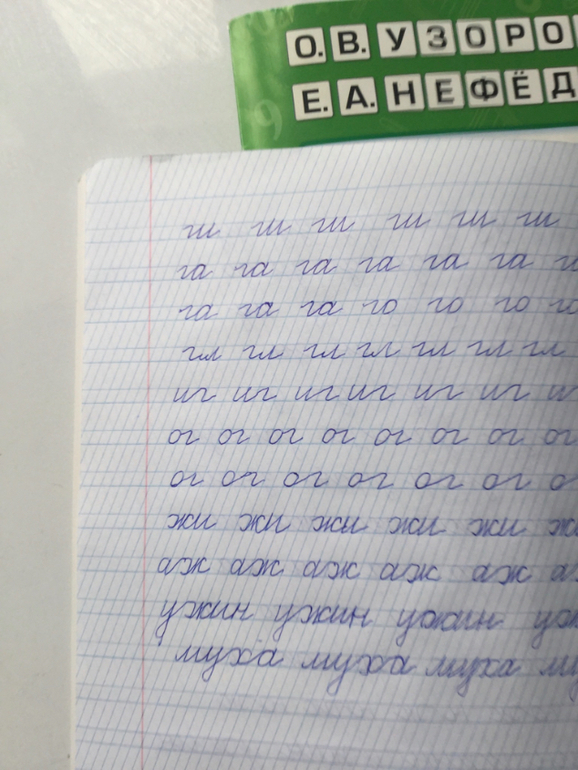 О. В. УЗОРО
Е. А. НЕФЁД
9
ги ги ги ги ги ги
га га га га га га
га га га го го го го
гл гл гл гл гл гл гл
иг иг иг иг иг иг
ог ог ог ог ог ог ог ог
ог ог ог ог ог ог
жи жи жи жи жи
аж аж аж аж аж
ужин ужин ужин
муха муха муха